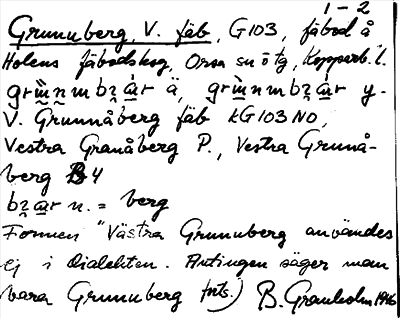 1-2
Grunuberg, V. fäb, G103, fäbod å
Holens fäbodskog, Orsa sn ö tg, Kopparb. l.
V. Grunnåberg fäb kG103 NO,
Vestra Granåberg P., Vestra Grunå-
berg B4
= berg
Formen "Västra Grunuberg användes
ej i dialekten. Antingen säger man
bara Grunuberg (forts.) B. Granholm 1946